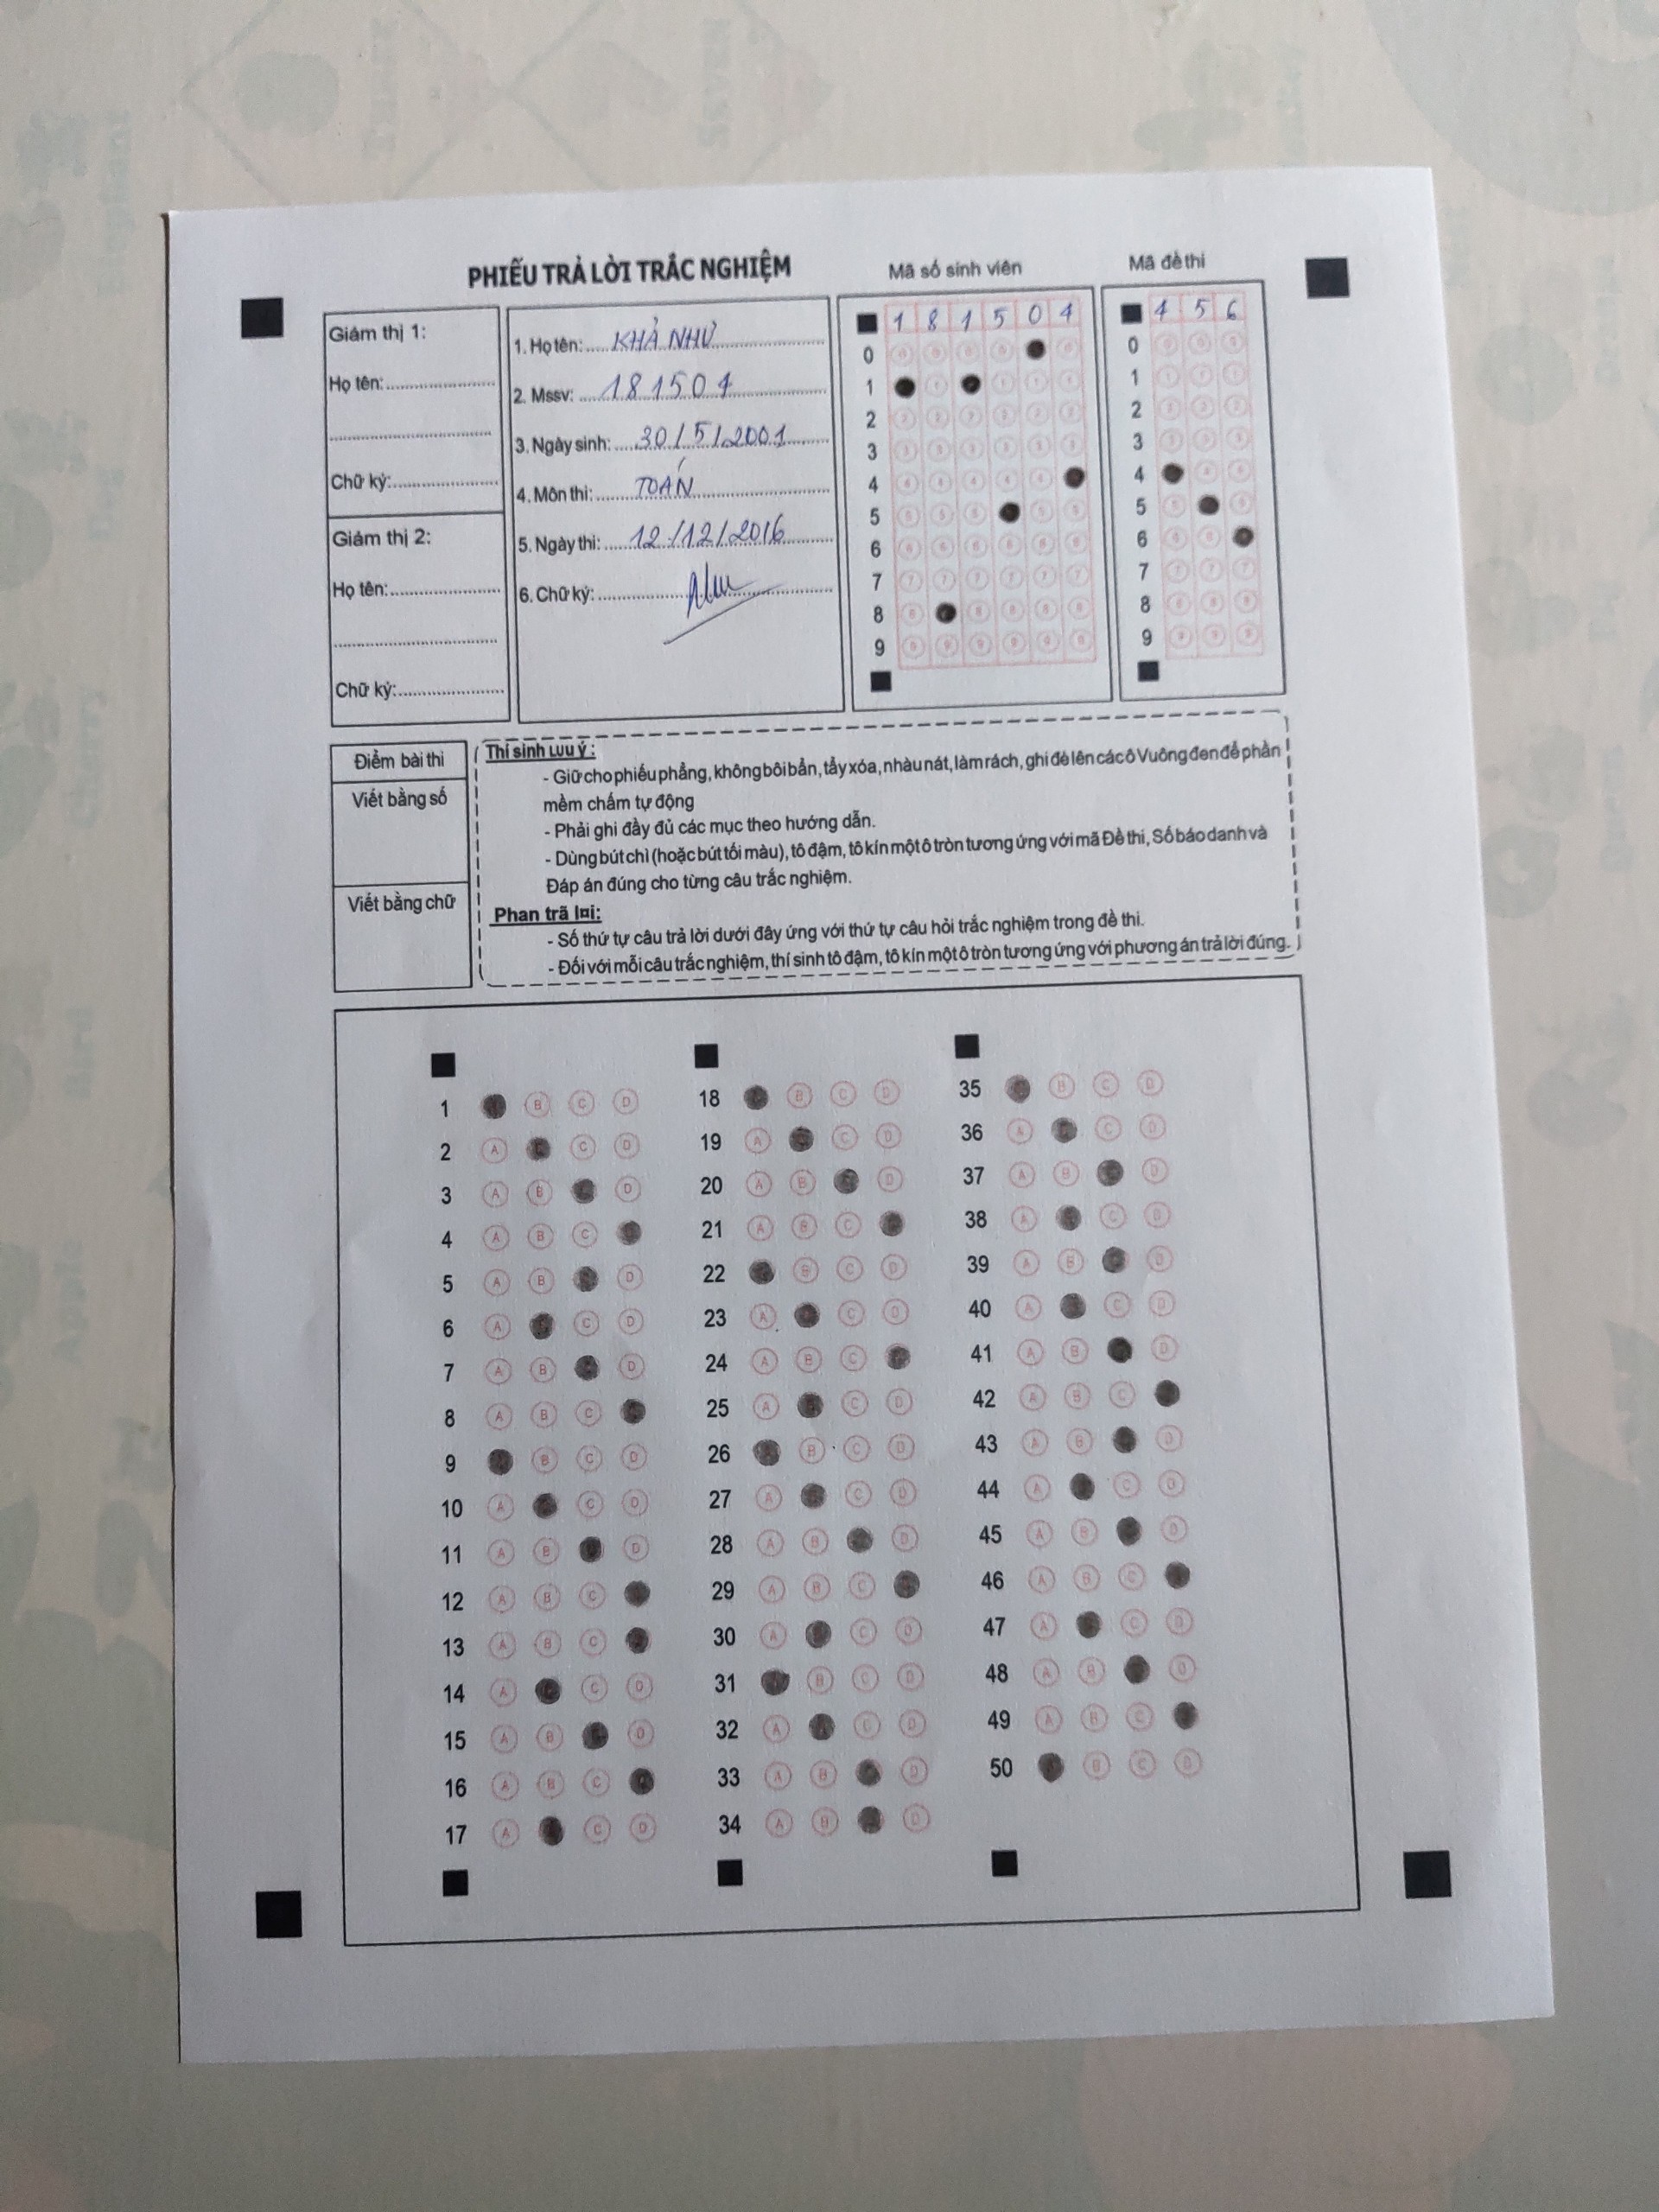 PHIẾU TRẢ LỜI TRẮC NGHIỆM
Mã số sinh viên
Mã đề thi
Giám thị 1:
Họ tên:
Chữ ký:
Giám thị 2:
Họ tên:
Chữ ký:
1. Họ tên: KHẢ NHƯ
2. Mssv: 181504
3. Ngày sinh: 30/5/2001
4. Môn thi: TOÁN
5. Ngày thi: 12/12/2016
6. Chữ ký:
1 8 1 5 0 4
0
1
2
3
4
5
6
7
8
9
4 5 6
0
1
2
3
4
5
6
7
8
9
Điểm bài thi
Viết bằng số
Viết bằng chữ
Thí sinh Lưu ý :
- Giữ cho phiếu phẳng, không bôi bẩn, tẩy xóa, nhàu nát, làm rách, ghi đè lên các ô Vuông đen để phần
mềm chấm tự động
- Phải ghi đầy đủ các mục theo hướng dẫn.
- Dùng bút chì (hoặc bút tối màu), tô đậm, tô kín một ô tròn tương ứng với mã Đề thi, Số báo danh và
Đáp án đúng cho từng câu trắc nghiệm.
Phan trã lơi:
- Số thứ tự câu trả lời dưới đây ứng với thứ tự câu hỏi trắc nghiệm trong đề thi.
- Đối với mỗi câu trắc nghiệm, thí sinh tô đậm, tô kín một ô tròn tương ứng với phương án trả lời đúng.
1 B C D
2 A C D
3 A B D
4 A B C
5 A B D
6 A C D
7 A B D
8 A B C
9 B C D
10 A C D
11 A B D
12 A B C
13 A B C
14 A C D
15 A B D
16 A B C
17 A C D
18 B C D
19 A C D
20 A B D
21 A B C
22 B C D
23 A C D
24 A B C
25 A C D
26 B C D
27 A C D
28 A B D
29 A B C
30 A C D
31 B C D
32 A C D
33 A B D
34 A B D
35 B C D
36 A C D
37 A B D
38 A C D
39 A B D
40 A C D
41 A B D
42 A B C
43 A B D
44 A C D
45 A B D
46 A B C
47 A C D
48 A B D
49 A B C
50 B C D